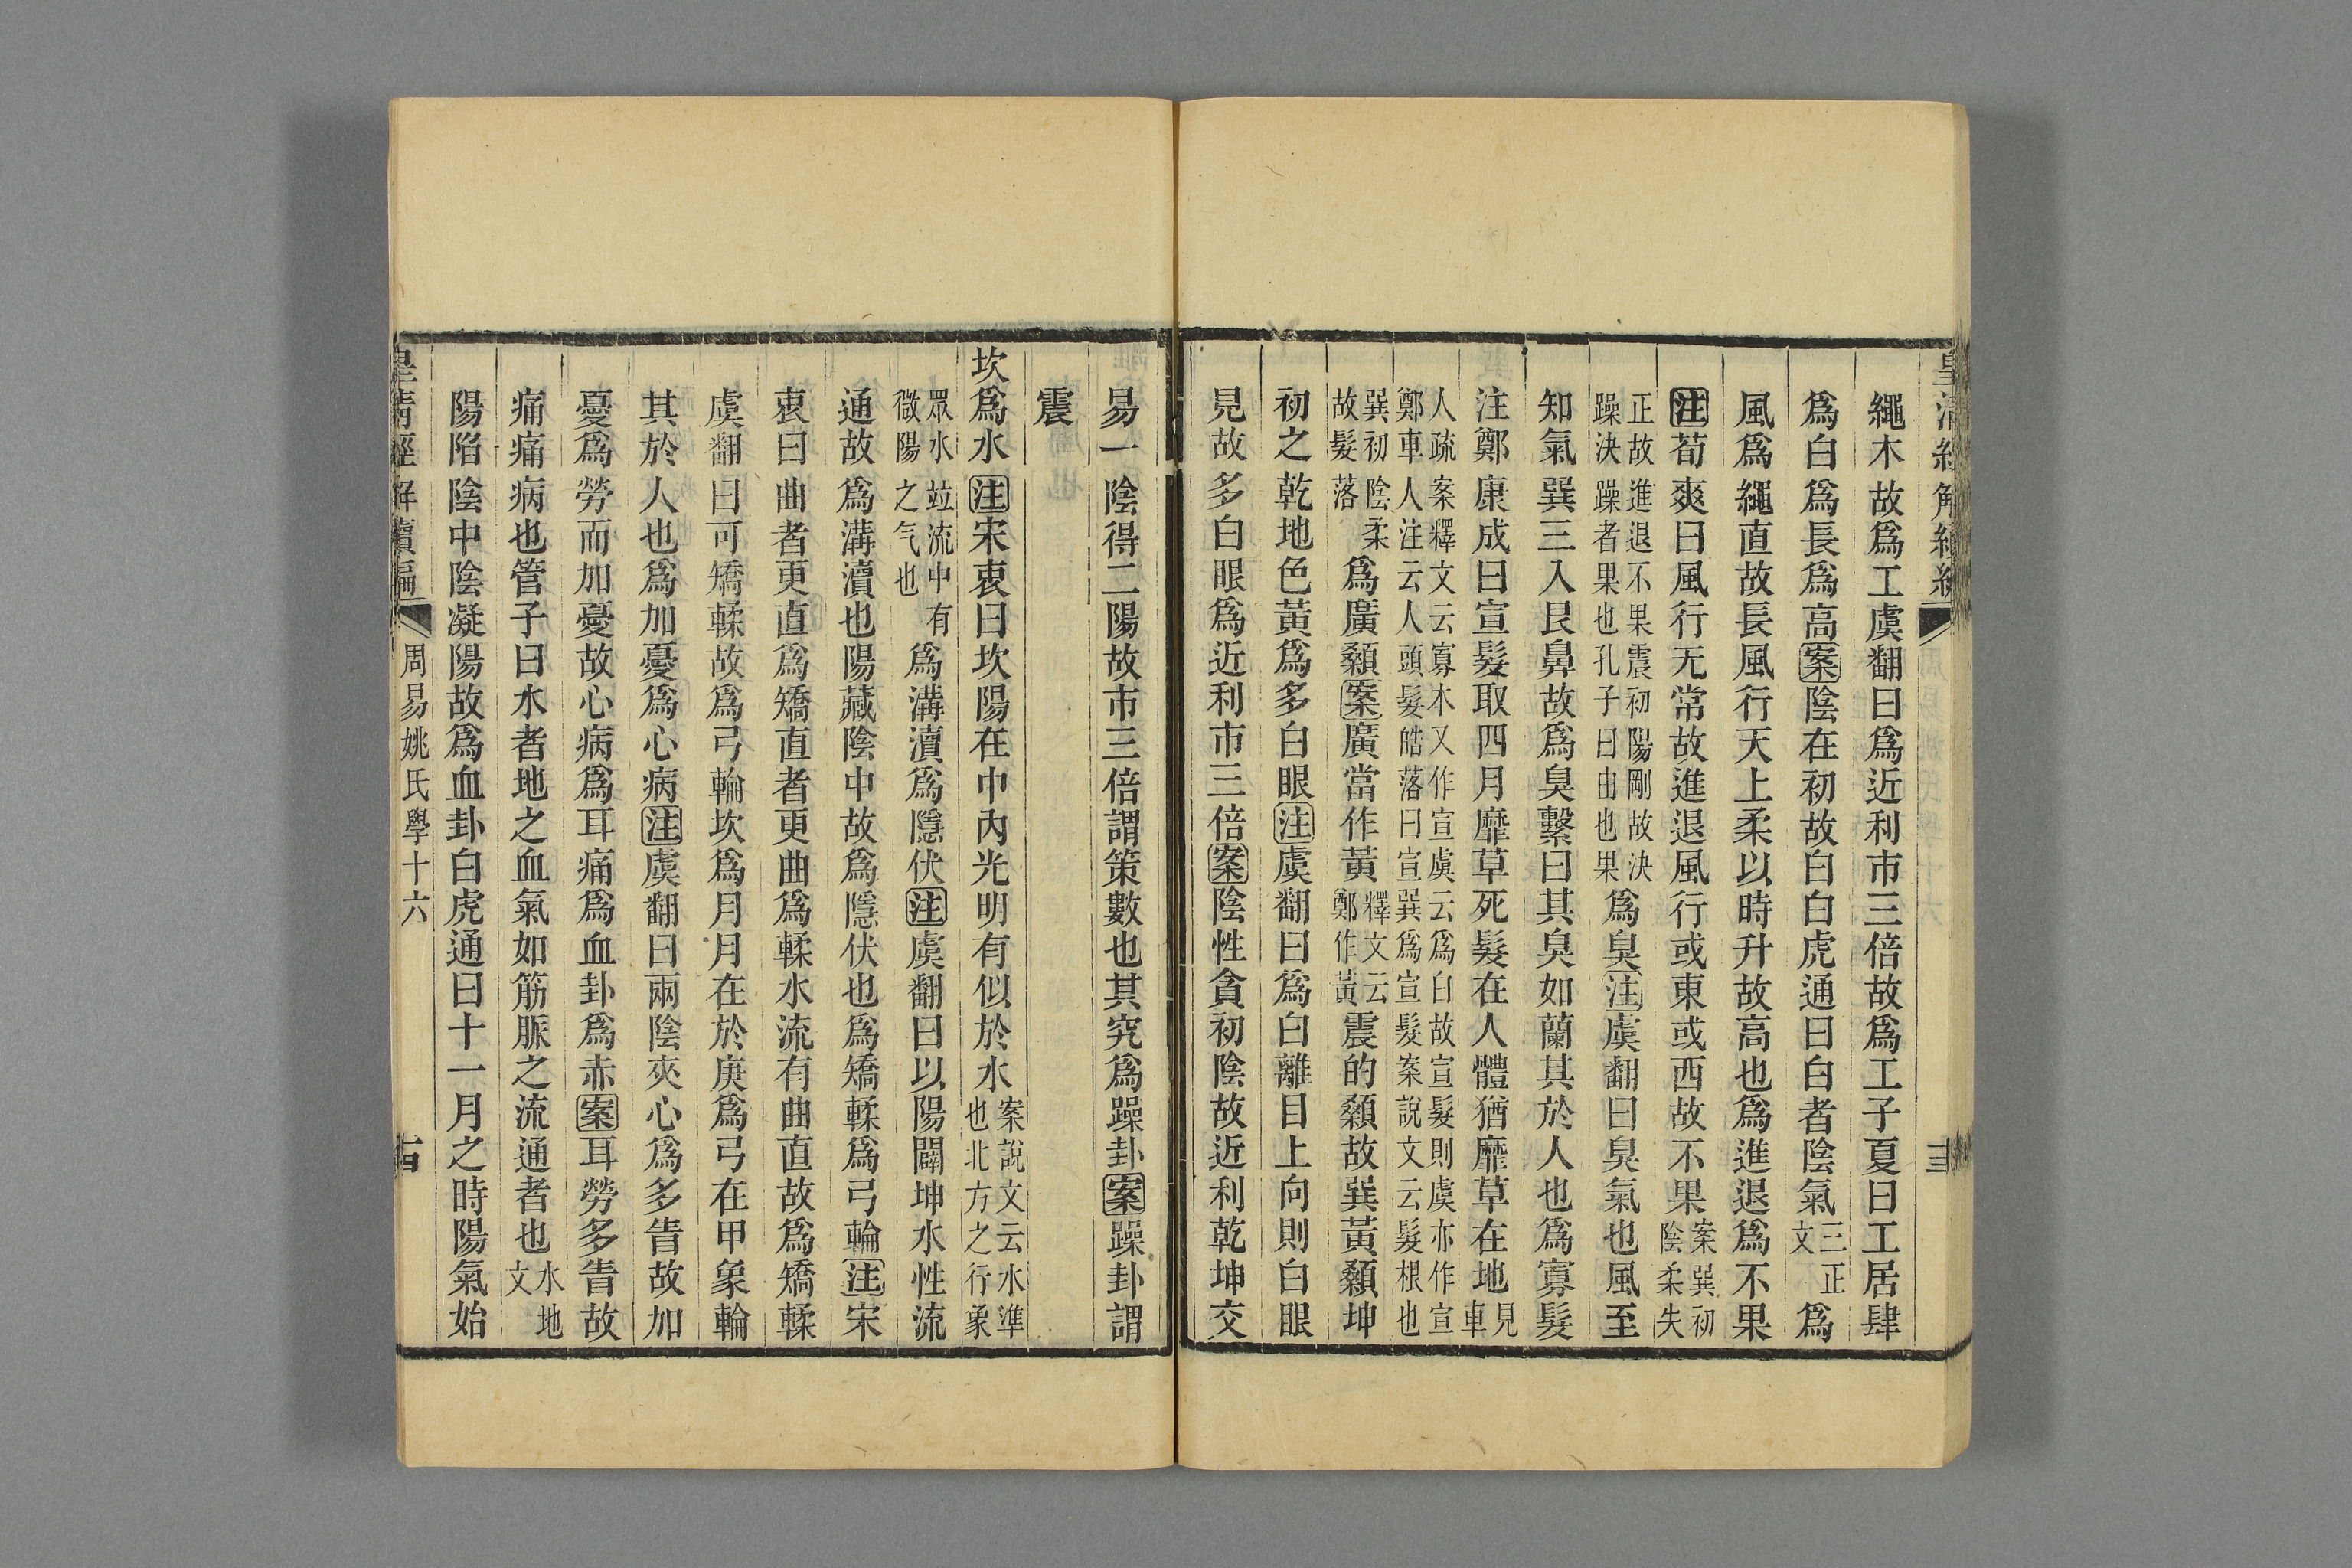 皇清經解續編
十三
繩木故爲工虞翻曰爲近利市三倍故爲工子夏曰工居肆
爲白爲長爲高案陰在初故白白虎通曰白者陰氣三正文爲
風爲繩直故長風行天上柔以時升故高也爲進退爲不果
注荀爽曰風行无常故進退風行或東或西故不果案巽初陰柔失
正故進退不果震初陽剛故決躁決躁者果也孔子曰由也果爲臭注虞翻曰臭氣也風至
知氣巽三入艮鼻故爲臭繫曰其臭如蘭其於人也爲寡髮
注鄭康成曰宣髮取四月靡草死髮在人體猶靡草在地見車
人疏案釋文云寡本又作宣虞云爲白故宣髮則虞亦作宣鄭車人注云人頭髮皓落曰宣巽爲宣髮案說文云髮根也
巽初陰柔故髮落爲廣顙案廣當作黃釋文云鄭作黃震的顙故巽黃顙坤
初之乾地色黃爲多白眼注虞翻曰爲白離目上向則白眼
見故多白眼爲近利市三倍案陰性貪初陰故近利乾坤交
易一陰得二陽故市三倍謂策數也其究爲躁卦案躁卦謂
震
坎爲水注宋衷曰坎陽在中內光明有似於水案說文云水準也北方之行象
眾水竝流中有微陽之气也爲溝瀆爲隱伏注虞翻曰以陽闢坤水性流
通故爲溝瀆也陽藏陰中故爲隱伏也爲矯輮爲弓輪注宋
衷曰曲者更直爲矯直者更曲爲輮水流有曲直故爲矯輮
虞翻曰可矯輮故爲弓輪坎爲月月在於庚爲弓在甲象輪
其於人也爲加憂爲心病注虞翻曰兩陰夾心爲多眚故加
憂爲勞而加憂故心病爲耳痛爲血卦爲赤案耳勞多眚故
痛痛病也管子曰水者地之血氣如筋脈之流通者也水地文
陽陷陰中陰凝陽故爲血卦白虎通曰十一月之時陽氣始
皇清經解續編
周易姚氏學十六
十四